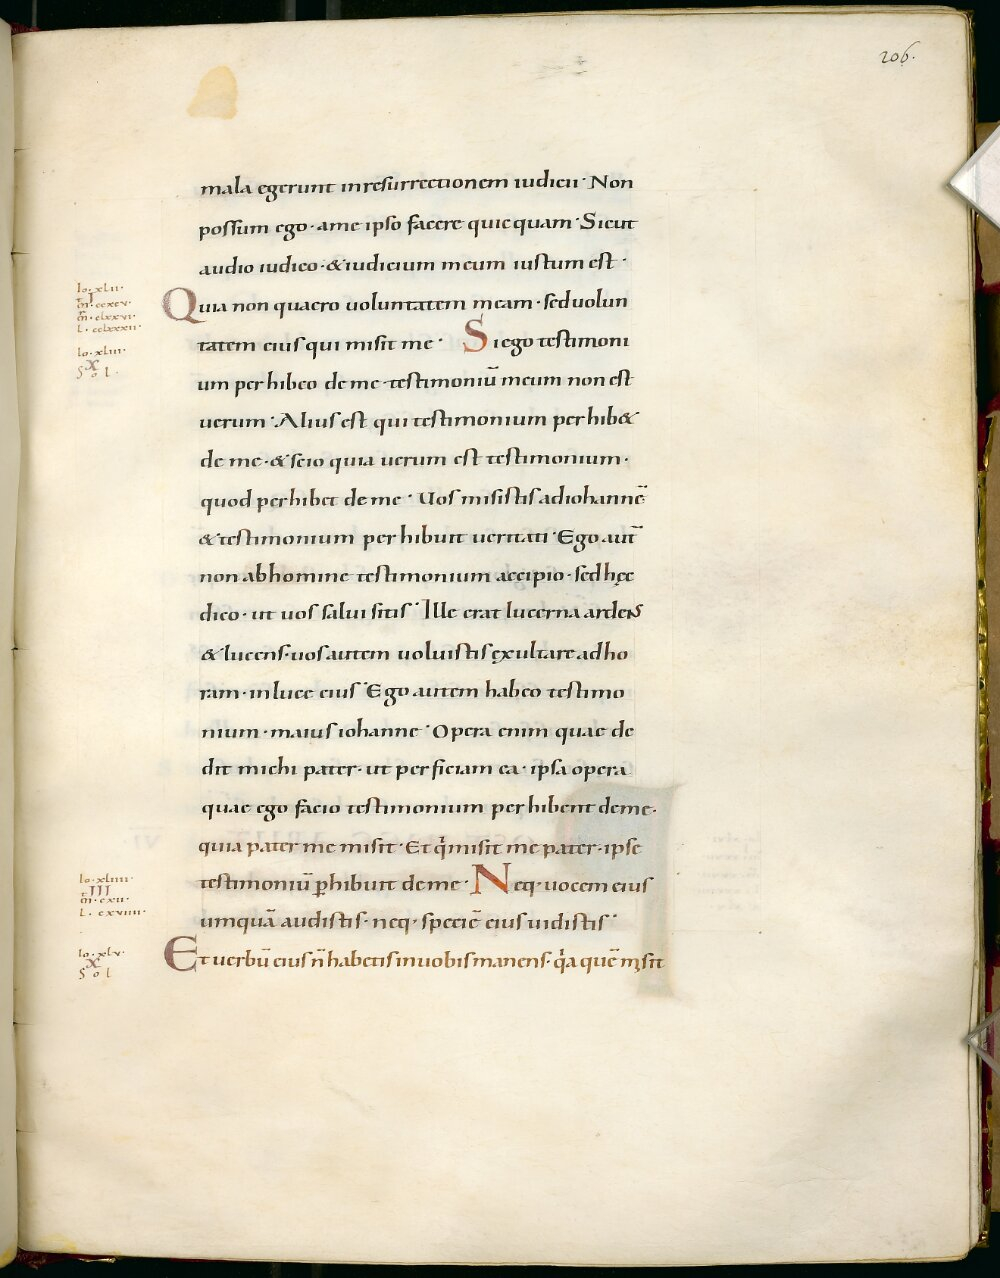 206.
mala egerunt inresurrectionem iudicii· Non
possum ego· ame ipso facere quicquam· Sicut
audio iudico· &iudicium meum iustum est·
Io· xlii·
I
m̅· ccxcv·
m̅r· clxxvi·
L· cclxxxii·
Quia non quaero uoluntatem meam· seduolun
tatem eius qui misit me· Siego testimoni
Io· xliii·
X
Sol·
um perhibeo de me· testimoniū meum non est
uerum· Alius est qui testimonium perhib&
de me· &scio quia uerum est testimonium·
quod perhibet de me· Uos misistis adiohannē
&testimonium perhibuit ueritati· Ego aut̄
non abhomine testimonium accipio· sed hęc
dico· ut uos salui sitis· Ille erat lucerna ardens
&lucens· uos autem uoluistis ęxultare adho
ram· inluce eius· Ego autem habeo testimo
nium· maius iohanne· Opera enim quae de
dit michi pater· ut perficiam ea· ipsa opera
quae ego facio testimonium perhibent deme·
quia pater me misit· Et q̄ misit me pater· ipse
Io· xliiii·
III
m̅· cxii·
L· cxviiii·
testimoniū ꝑhibuit deme· Neq· uocem eius
umquā audistis· neq· speciē eius uidistis·
Io· xlv·
X
Sol
Et uerbū eius n̄ habetis inuobis manens· q̄a quē misit